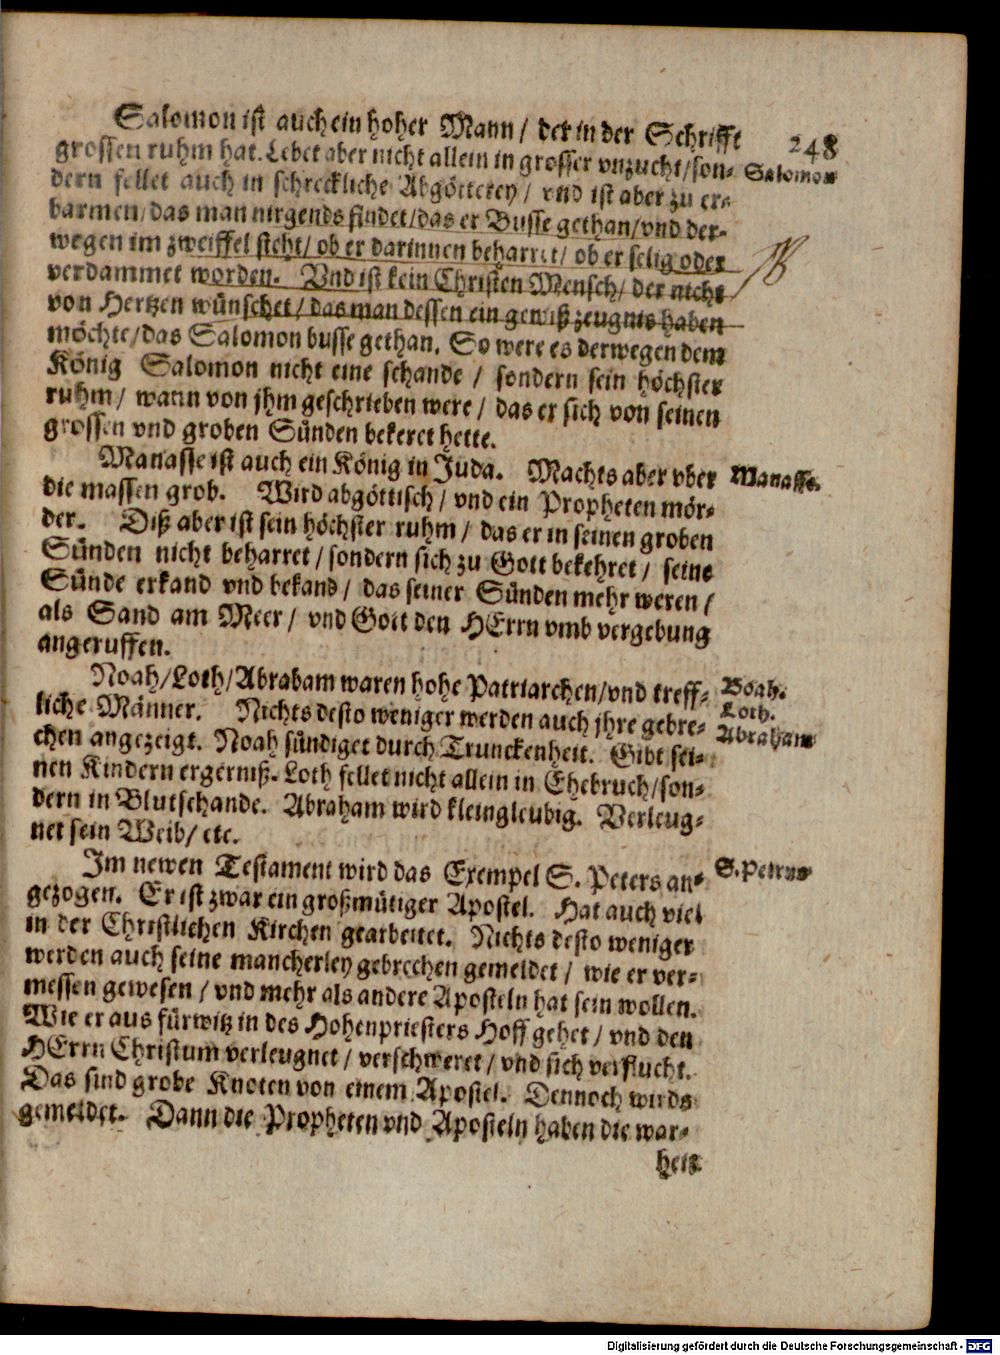 248
Salomon ist auch ein hoher Mann / der in der Schrifft
grossen ruhm hat. Lebet aber nicht allein in grosser vnzucht/son-
Salomon
dern fellet auch in schreckliche Abgötterey / vnd ist aber zu er-
barmen/das man nirgends findet/das er Busse gethan/vnd der-
wegen im zweiffel steht/ ob er darinnen beharret/ ob er selig oder
verdammet worden. Vnd ist kein Christen Mensch/ der nicht
von Hertzen wünschet/ das man dessen ein gewiß zeugnis haben
möchte/das Salomon busse gethan. So were es derwegen dem
König Salomon nicht eine schande / sondern sein höchster
ruhm/ wann von jhm geschrieben were / das er sich von seinen
grossen vnd groben Sünden bekeret hette.
Manasse ist auch ein König in Juda. Machts aber vber
Manasse.
die massen grob. Wird abgöttisch / vnd ein Propheten mör-
der. Diß aber ist sein höchster ruhm / das er in seinen groben
Sünden nicht beharret / sondern sich zu Gott bekehret / seine
Sünde erkand vnd bekand / das seiner Sünden mehr weren /
als Sand am Meer / vnd Gott den HErrn vmb vergebung
angeruffen.
Noah/Loth/Abraham waren hohe Patriarchen/vnd treff-
Noah.
Loth.
Abraham
liche Männer. Nichts desto weniger werden auch jhre gebre-
chen angezeigt. Noah sündiget durch Trunckenheit. Gibt sei-
nen Kindern ergerniß. Loth fellet nicht allein in Ehebruch/son-
dern in Blutschande. Abraham wird kleingleubig. Verleug-
net sein Weib/ etc.
Im newen Testament wird das Exempel S. Peters an-
S. Petrus
gezogen. Er ist zwar ein großmütiger Apostel. Hat auch viel
in der Christlichen Kirchen gearbeitet. Nichts desto weniger
werden auch seine mancherley gebrechen gemeldet / wie er ver-
messen gewesen / vnd mehr als andere Aposteln hat sein wollen.
Wie er aus fürwitz in des Hohenpriesters Hoff gehet / vnd den
HErrn Christum verleugnet / verschweret / vnd sich verflucht.
Das sind grobe Knoten von einem Apostel. Dennoch wirds
gemeldet. Dann die Propheten vnd Aposteln haben die war-
heit
Digitalisierung gefördert durch die Deutsche Forschungsgemeinschaft - DFG